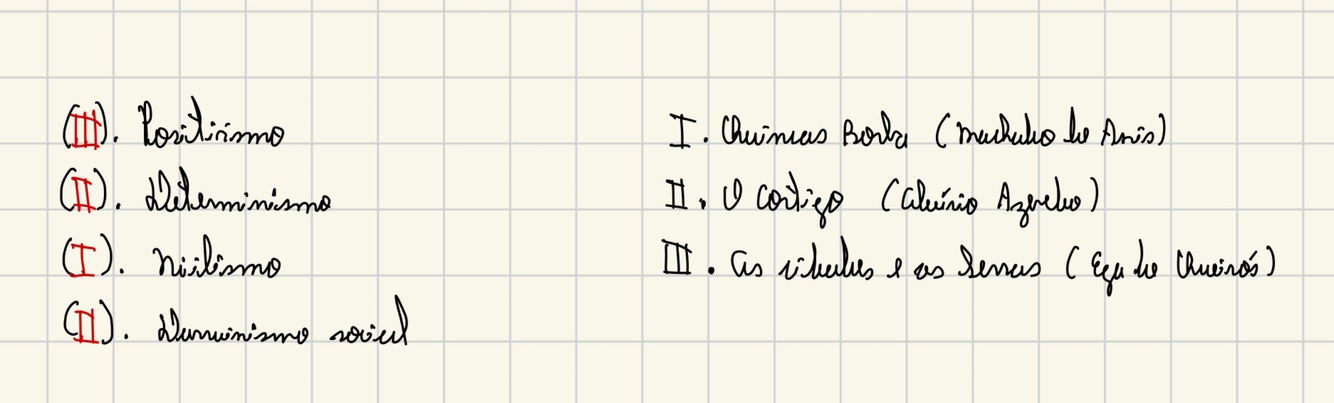 (III). Positivismo
(II). Determinismo
(I). Niilismo
(II). Darwinismo social
I. Quincas Borba (Machado de Assis)
II. O Cortiço (Aluísio Azevedo)
III. As cidades e as Serras (Eça de Queirós)